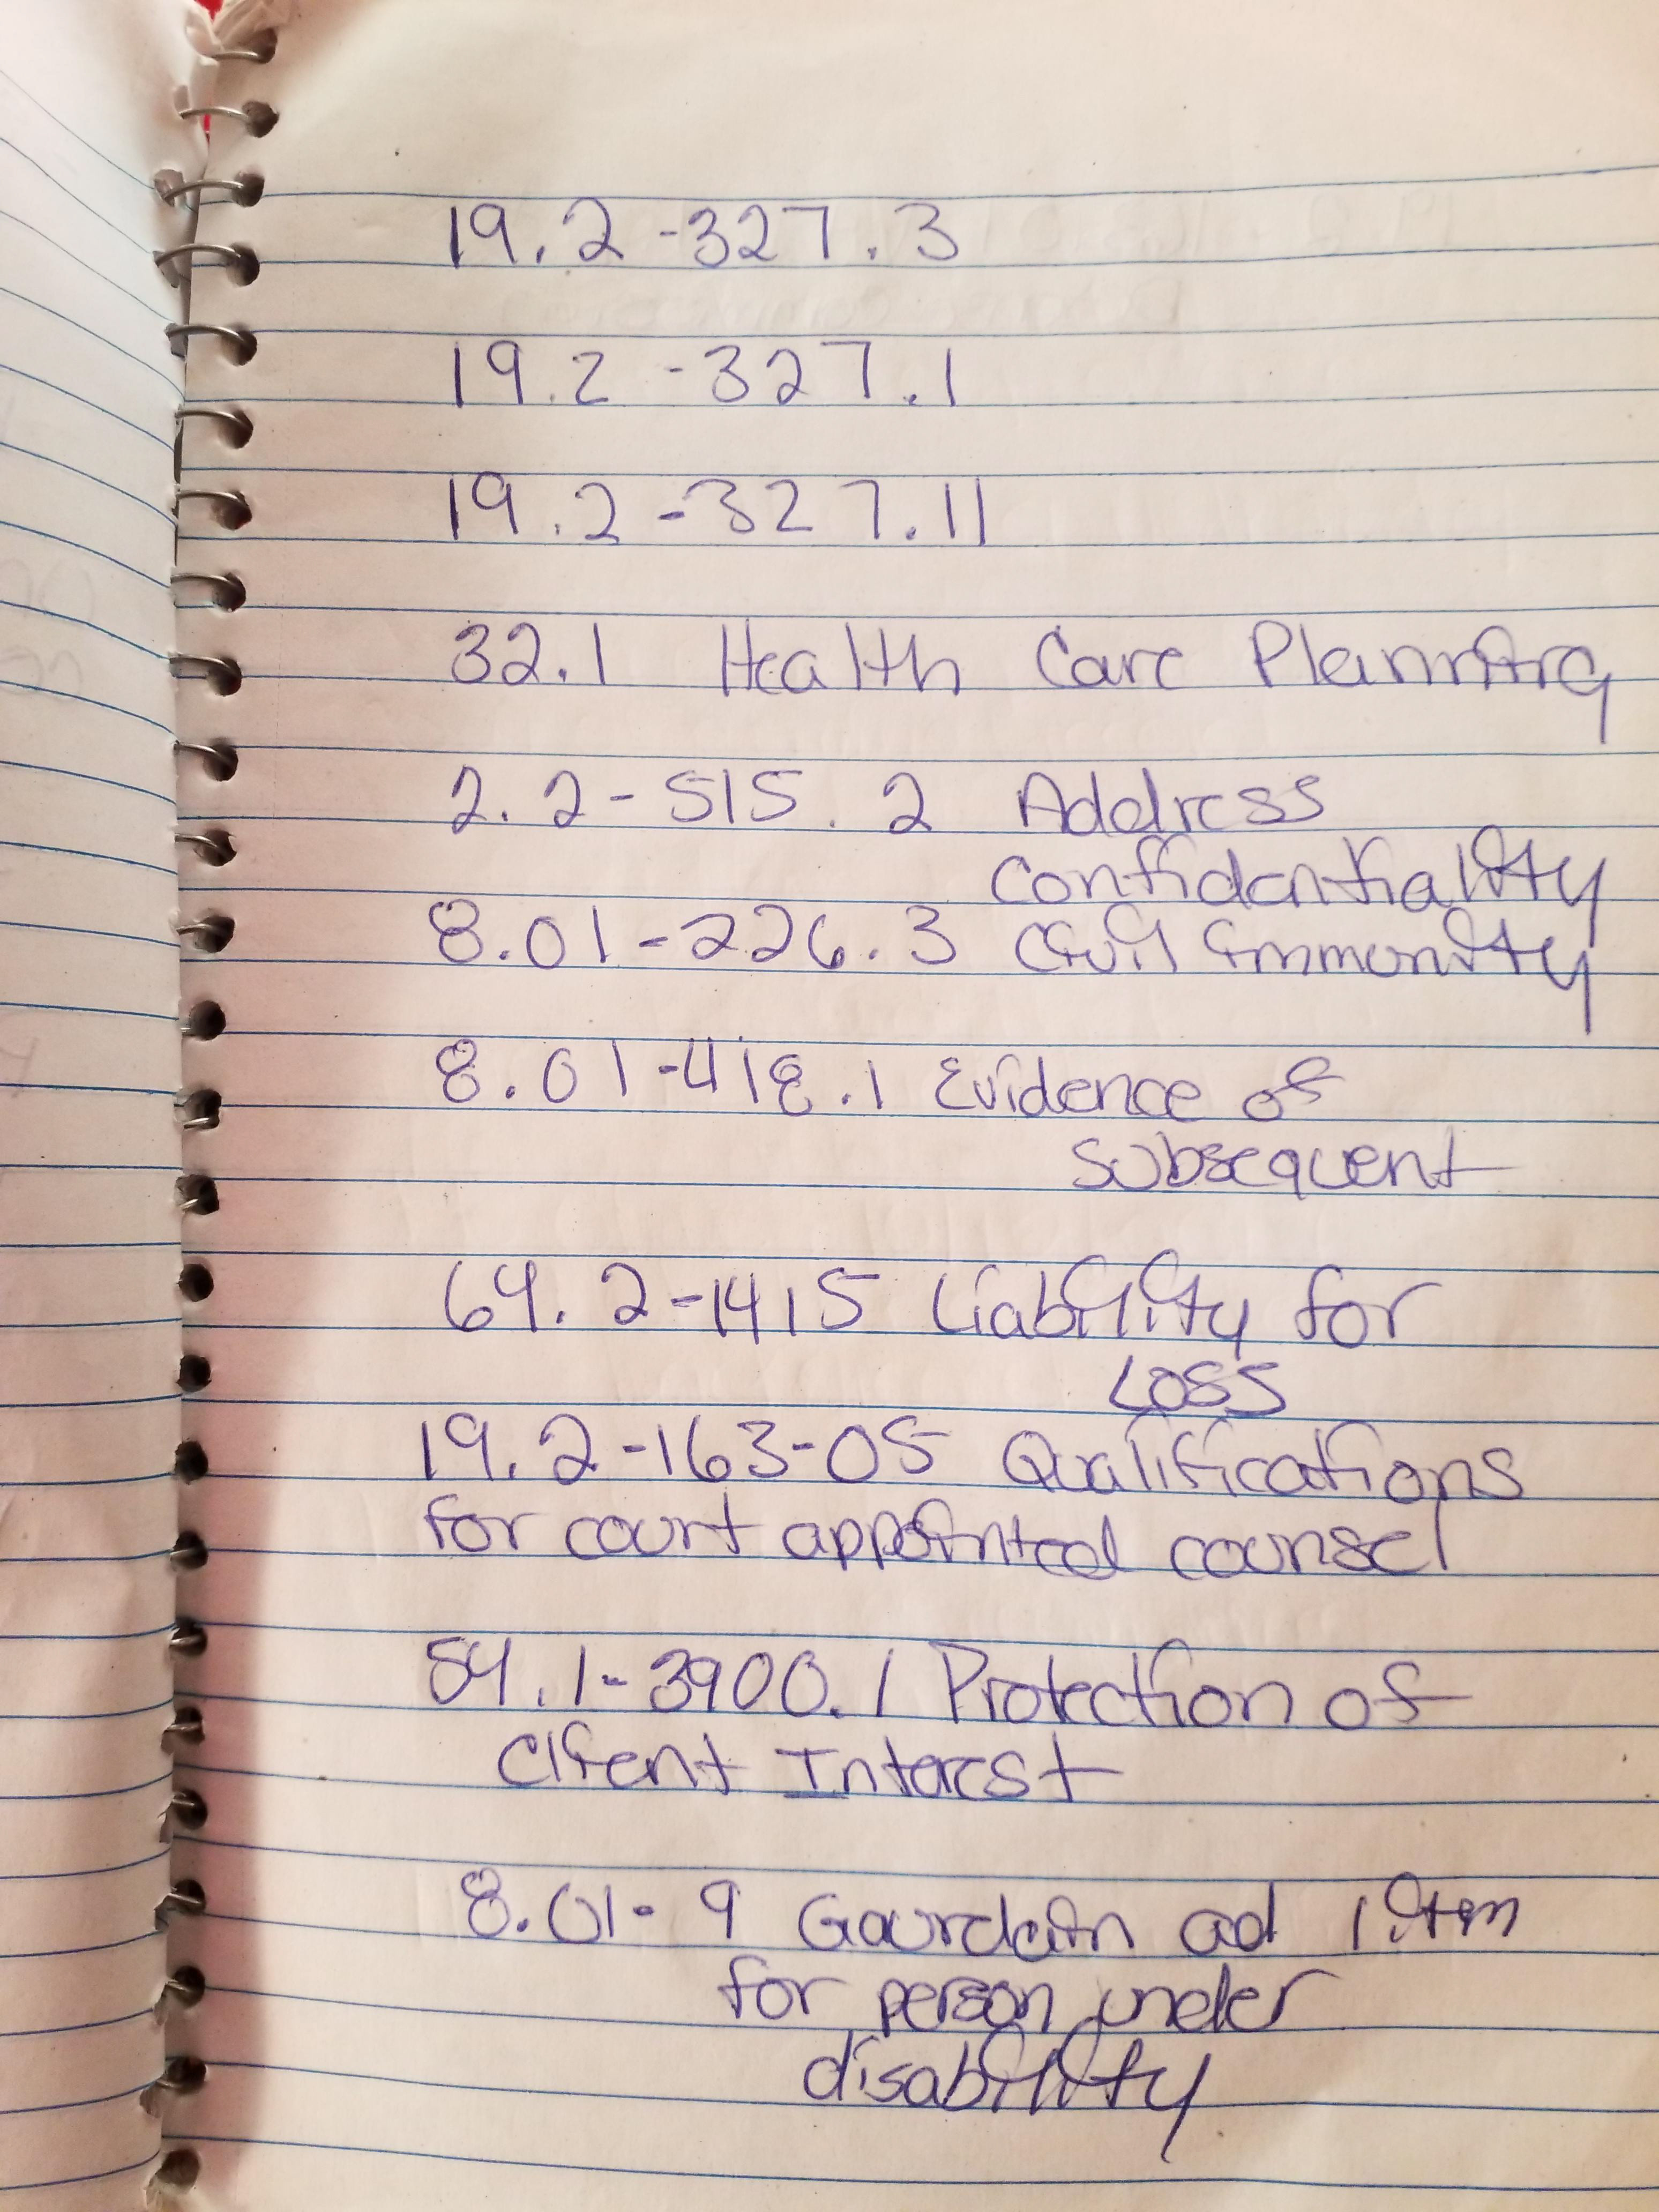 19.2-327.3
19.2-327.1
19.2-327.11
32.1 Health Care Planning
2.2-515.2 Address
Confidentiality
8.01-226.3 Civil Immunity
8.01-418.1 Evidence of
Subsequent
64.2-1415 Liability for
Loss
19.2-163-05 Qualifications
for court appointed counsel
54.1-3900.1 Protection of
Client Interest
8.01-9 Gaurdain ad litem
for person under
disability